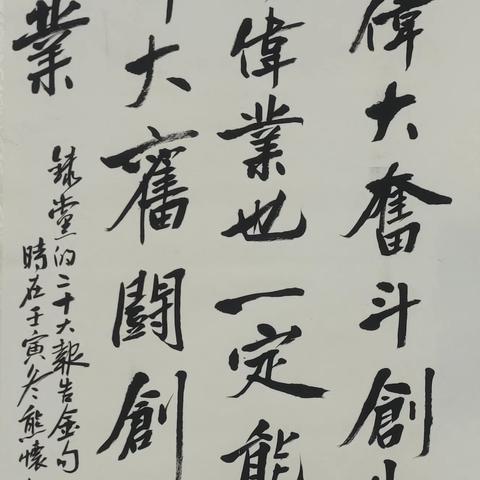 偉大奮斗創
偉業也一定能
大奮闘創
業
錄黨的二十大報告金句
時在壬寅冬熊懷